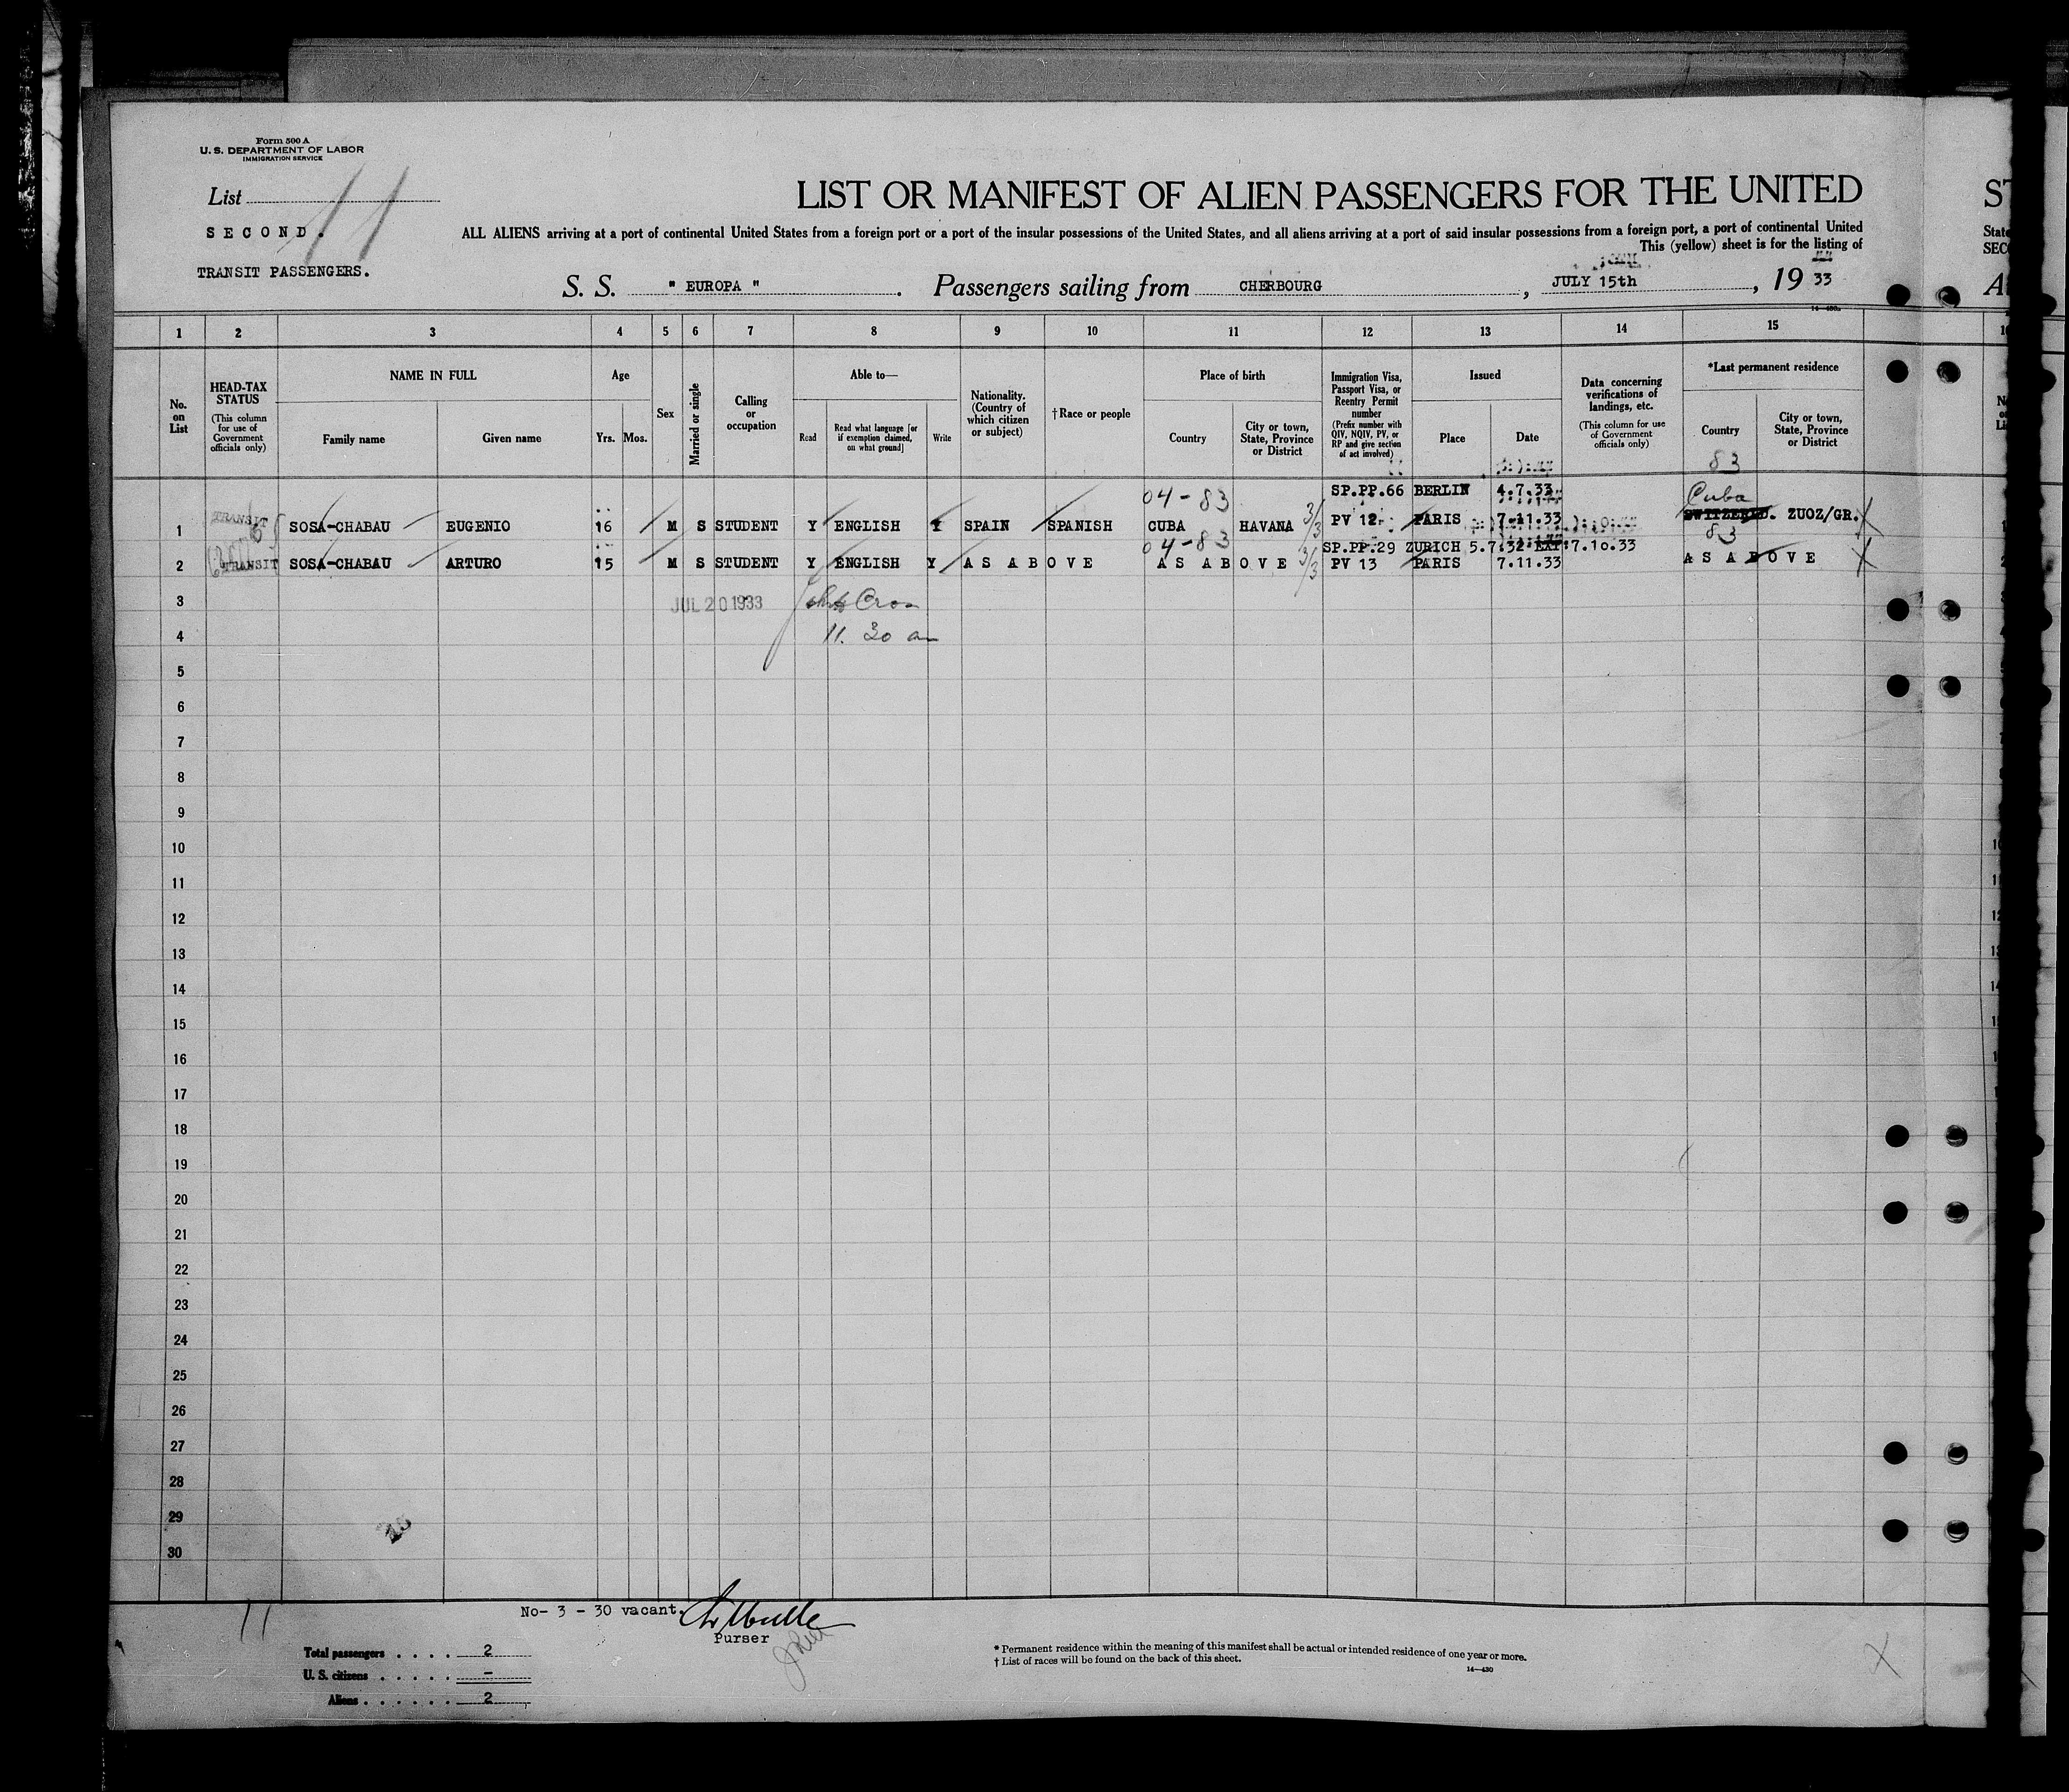 Form 500 A
U. S. DEPARTMENT OF LABOR
IMMIGRATION SERVICE
List 11
SECOND.
TRANSIT PASSENGERS.
LIST OR MANIFEST OF ALIEN PASSENGERS FOR THE UNITED
ST
ALL ALIENS arriving at a port of continental United States from a foreign port or a port of the insular possessions of the United States, and all aliens arriving at a port of said insular possessions from a foreign port, a port of continental United
State
This (yellow) sheet is for the listing of
SECO
S. S. " EUROPA " . Passengers sailing from CHERBOURG , JULY 15th , 19 33
14—430a
1 2 3 4 5 6 7 8 9 10 11 12 13 14 15
No. on List
HEAD-TAX STATUS
(This column for use of Government officials only)
NAME IN FULL
Family name
Given name
Age
Yrs. Mos.
Sex
Married or single
Calling or occupation
Able to—
Read
Read what language [or if exemption claimed, on what ground]
Write
Nationality. (Country of which citizen or subject)
†Race or people
Place of birth
Country
City or town, State, Province or District
Immigration Visa, Passport Visa, or Reentry Permit number
(Prefix number with QIV, NQIV, PV, or RP and give section of act involved)
Issued
Place
Date
Data concerning verifications of landings, etc.
(This column for use of Government officials only)
*Last permanent residence
Country
City or town, State, Province or District
83
04-83 SP.PP.66 BERLIN 4.7.33 Cuba
1 TRANSIT SOSA-CHABAU EUGENIO 16 M S STUDENT Y ENGLISH Y SPAIN SPANISH CUBA HAVANA 3/3 PV 12 PARIS 7.11.33 SWITZERLD. ZUOZ/GR. X
04-83 SP.PP.29 ZURICH 5.7.32 EXP:7.10.33 83
2 TRANSIT SOSA-CHABAU ARTURO 15 M S STUDENT Y ENGLISH Y AS ABOVE AS ABOVE 3/3 PV 13 PARIS 7.11.33 AS ABOVE X
3 JUL 20 1933
4 11.30 am
5
6
7
8
9
10
11
12
13
14
15
16
17
18
19
20
21
22
23
24
25
26
27
28
29
30
11
No- 3 - 30 vacant.
Purser
Total passengers . . . . 2
U. S. citizens . . . . . –
Aliens . . . . . . 2
* Permanent residence within the meaning of this manifest shall be actual or intended residence of one year or more.
† List of races will be found on the back of this sheet.
14—430
X